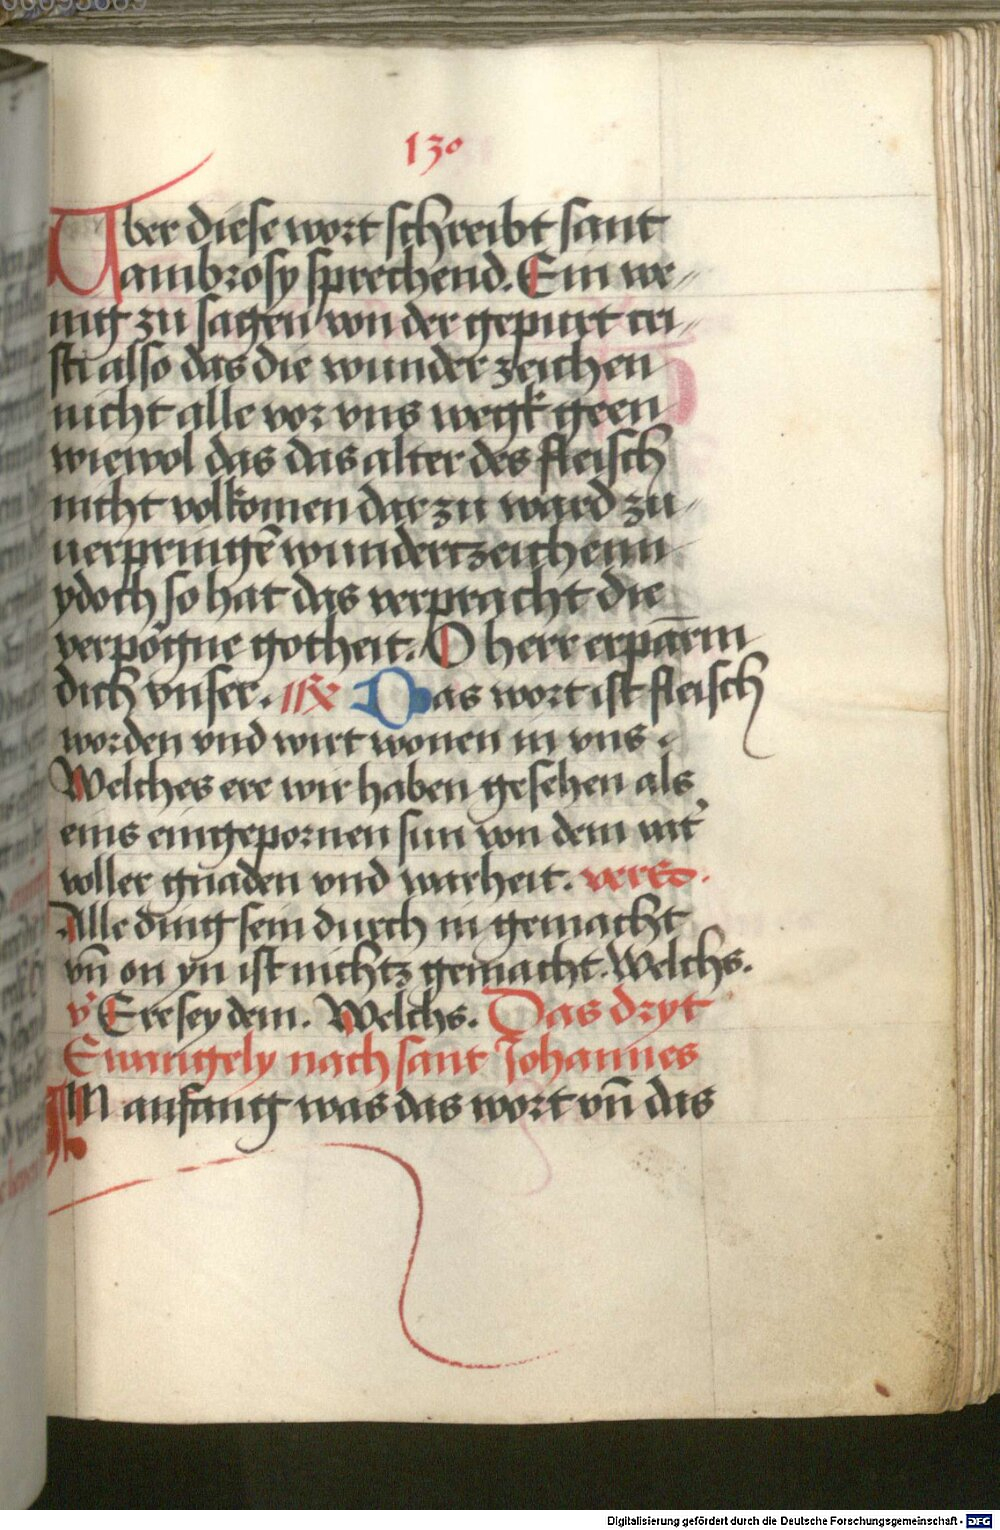 130
Vber diese wort schreibt sant
ambrosy sprechend. Ein we-
nig zu sagen von der gepurt cri-
sti also das die wunder zeichen
nicht alle vor vns wegk geen
wiewol das das alter des fleisch
nicht volkomen dar zu ward zu-
uerpringē wundertzeichenn
ydoch so hat das verpracht die
verpogne gotheit. O herr erparm
dich vnser. Das wort ist fleisch
worden vnd wirt wonen in vns.
Welches ere wir haben gesehen als
eins eingepornen sun von dem vat'
voller gnaden vnd warheit. vers.
Alle ding sein durch in gemacht
vn̄ on yn ist nichtz gemacht. Welchs.
v' Ere sey dem. Welchs. Das dryt
Ewangely nach sant Johannes
IN anfang was das wort vn̄ das
Digitalisierung gefördert durch die Deutsche Forschungsgemeinschaft - DFG